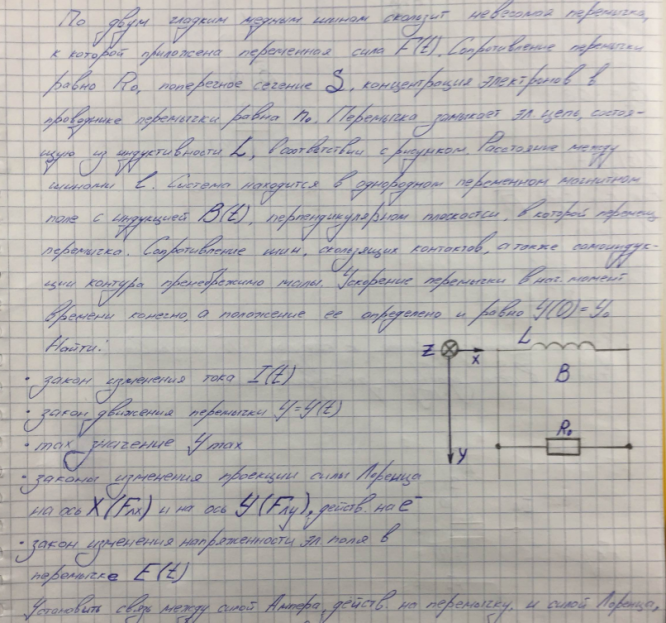 По двум гладким медным шинам скользит невесомая перемычка,
к которой приложена переменная сила F(t). Сопротивление перемычки
равно R₀, поперечное сечение S, концентрация электронов в
проводнике перемычки равна n₀. Перемычка замыкает эл цепь, состоя-
щую из индуктивности L, в соответствии с рисунком. Расстояние между
шинами l. Система находится в однородном переменном магнитном
поле с индукцией B(t), перпендикулярном плоскости, в которой перемещ
перемычка. Сопротивление шин, скользящих контактов, а также самоиндук-
ции контура пренебрежимо малы. Ускорение перемычки в нач. момент
времени конечно, а положение ее определено и равно y(0)=y₀
Найти:
• закон изменения тока I(t)
• закон движения перемычки y=y(t)
• max значение y max
• законы изменения проекции силы Лоренца
на ось X (Fлx) и на ось Y (Fлy), действ. на e⁻
• закон изменения напряженности эл поля в
перемычке E(t)
Установить связь между силой Ампера, действ. на перемычку, и силой Лоренца,
L
Z X
B
R₀
y